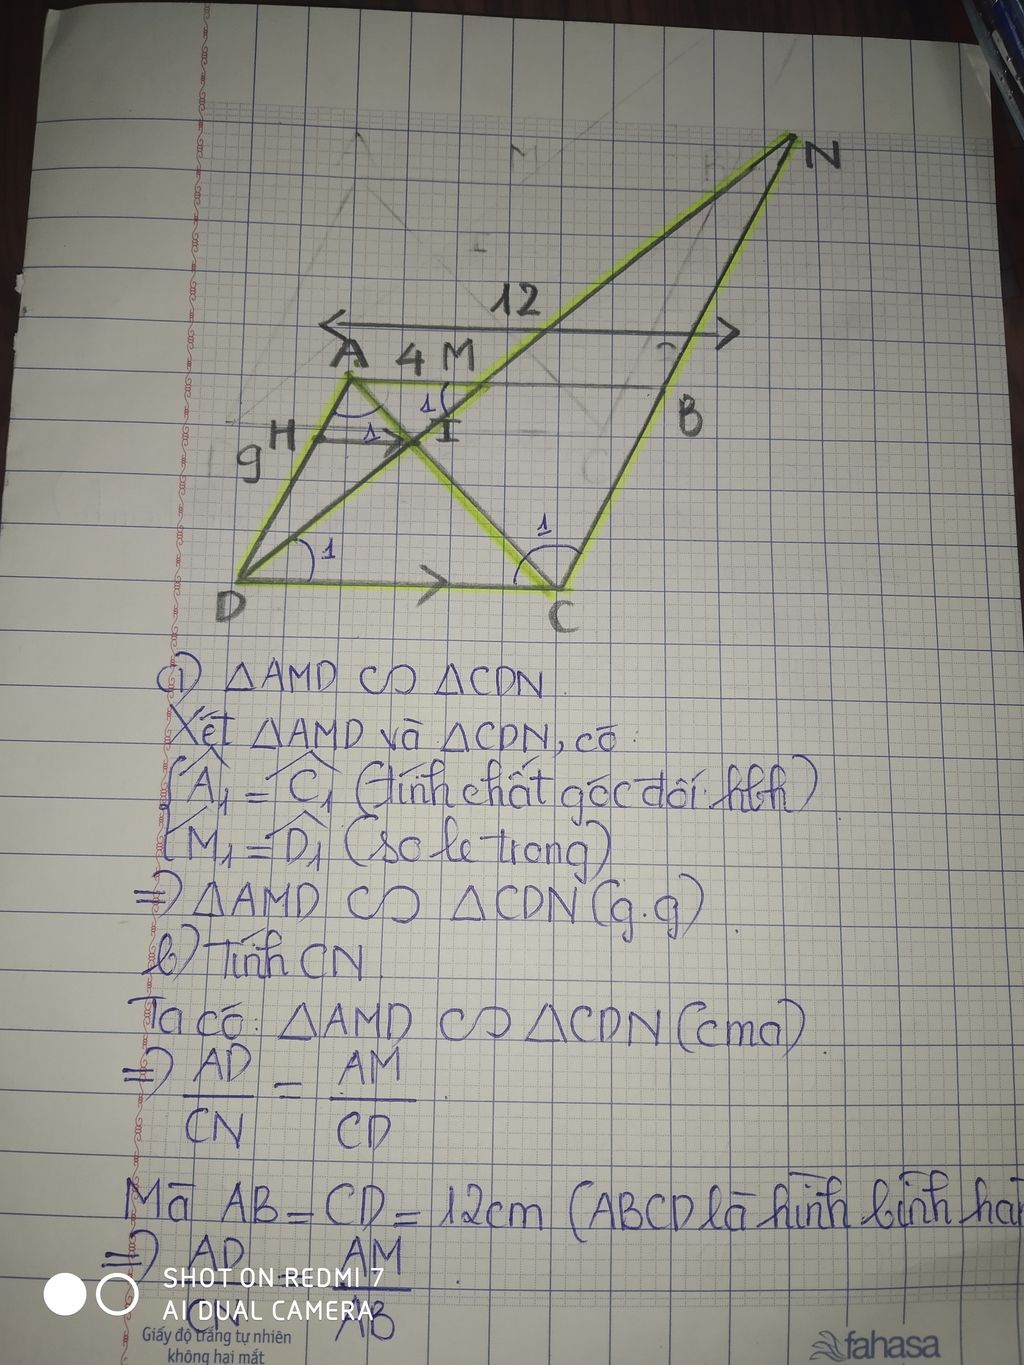 N
12
A 4 M
1
B
H 1 I
9
1
1
D
C
a) △AMD ∽ △CDN
Xét △AMD và △CDN, có:
Â₁ = Ĉ₁ (tính chất góc đối hbh)
M̂₁ = D̂₁ (so le trong)
⇒ △AMD ∽ △CDN (g.g)
b) Tính CN
Ta có: △AMD ∽ △CDN (cma)
⇒ AD/CN = AM/CD
Mà AB = CD = 12cm (ABCD là hình bình hàn
⇒ AD/CN AM/AB
SHOT ON REDMI 7
AI DUAL CAMERA
Giấy độ trắng tự nhiên
không hại mắt
fahasa